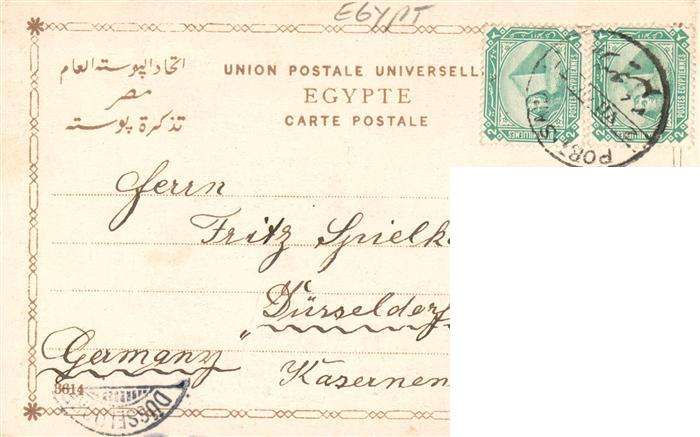 EGYPT
اتحاد البوسته العام
مصر
تذكرة بوسته
UNION POSTALE UNIVERSELL
EGYPTE
CARTE POSTALE
POSTES EGYPTIENNES
POSTES EGYPTIENNES
PORT SAID
Herrn
Fritz Spielk
Düsseldorf
Germany
Kasernen
3614
DÜSSEL